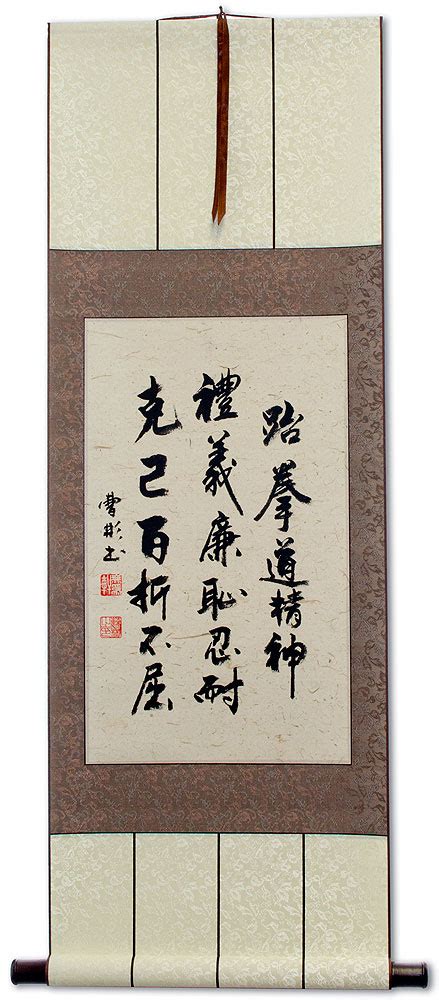 跆拳道精神
禮義廉恥忍耐
克己百折不屈
曹彬书